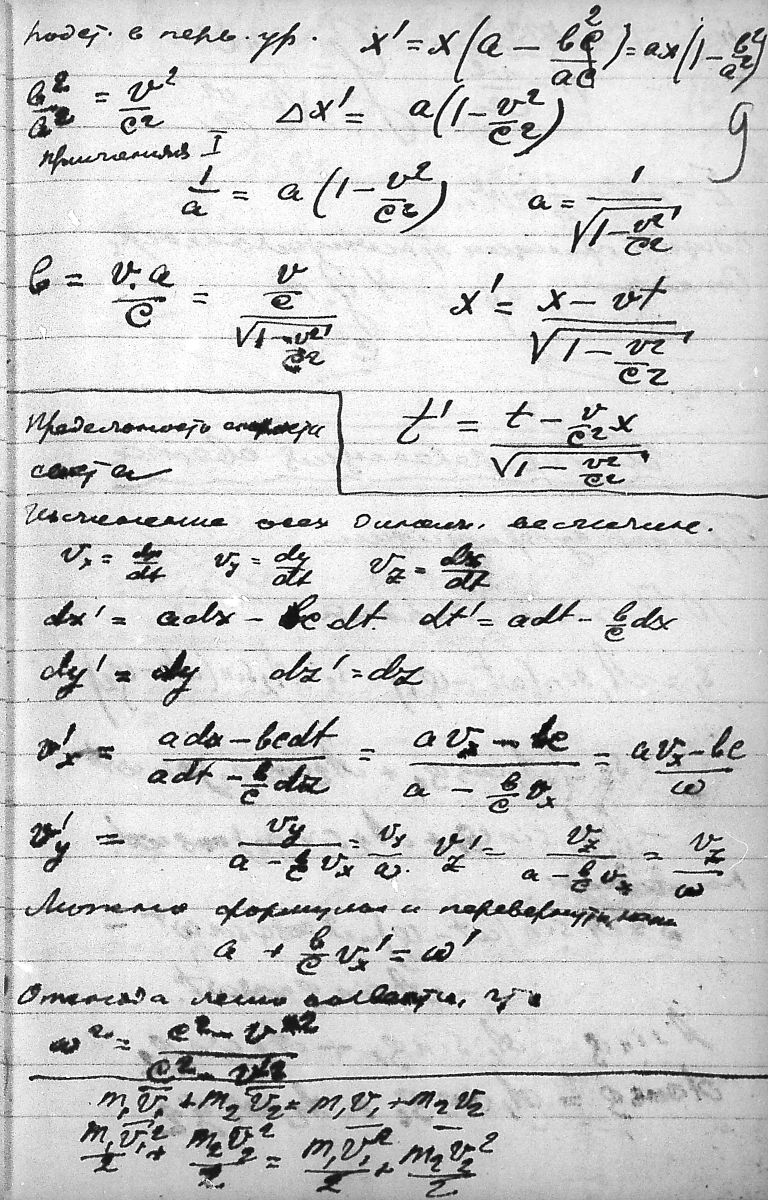 подст. в перв. ур. x' = x(a − b²c/ac) = ax(1 − b²/a²)
b²/a² = v²/c² Δx' = a(1 − v²/c²)
9
применяя I
1/a = a(1 − v²/c²) a = 1/√(1 − v²/c²)
b = v·a/c = (v/c)/√(1 − v²/c²) x' = (x − vt)/√(1 − v²/c²)
Предельность скорости
света
t' = (t − (v/c²)x)/√(1 − v²/c²)
всех величин.
v_x = dx/dt v_y = dy/dt v_z = dx/dt
dx' = adx − bcdt. dt' = adt − (b/c)dx
dy' = dy dz' = dz
v'_x = (adx − bcdt)/(adt − (b/c)dx) = (av_x − bc)/(a − (b/c)v_x) = (av_x − bc)/ω
v'_y = v_y/(a − (b/c)v_x) = v_y/ω. v_z' = v_z/(a − (b/c)v_x) = v_z/ω
Можно формулы и перевернуть
a + (b/c)v_x' = ω'
Отсюда легко что
ω² = (c² − v'²)/(c² − v²)
m₁v̅₁ + m₂v̅₂ = m₁v₁ + m₂v₂
m₁v̅₁²/2 + m₂v̅₂²/2 = m₁v₁²/2 + m₂v₂²/2